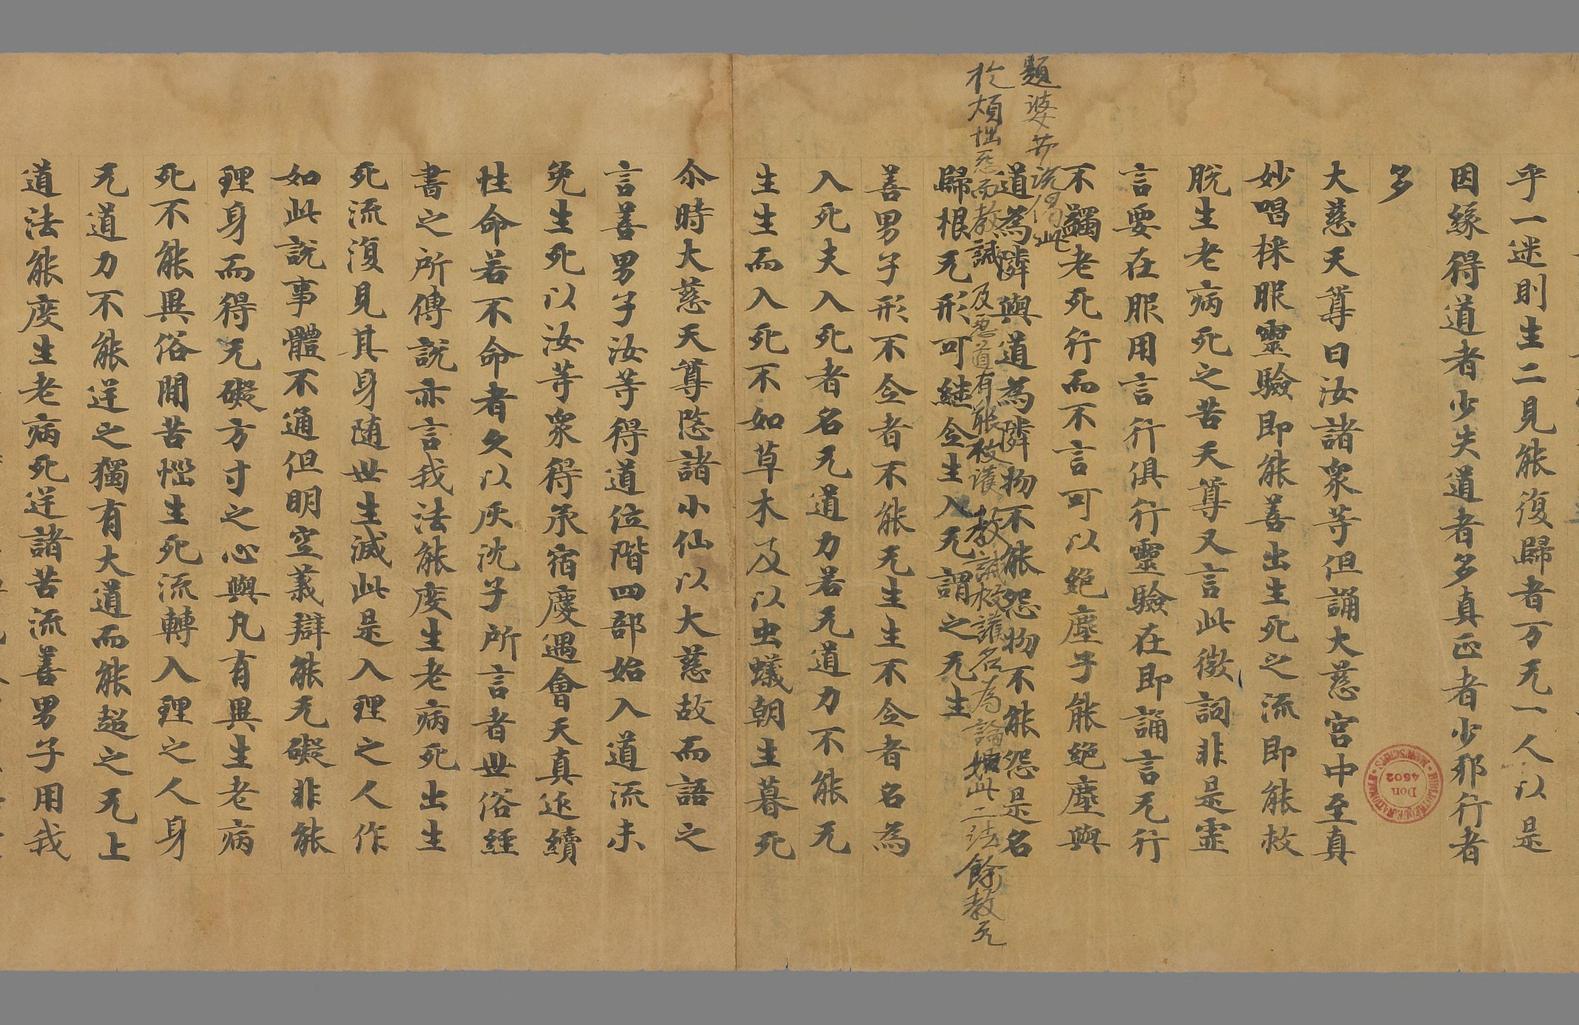 乎一迷則生二見能復歸者万无一人以是
因緣得道者少失道者多真正者少邪行者
多
大慈天尊曰汝諸衆等但誦大慈宮中至真
妙唱採服靈驗即能善出生死之流即能救
脫生老病死之苦天尊又言此徵詞非是靈
言要在服用言行俱行靈驗在即誦言无行
不蠲老死行而不言可以絶塵子能絶塵與
題婆
道為隣與道為隣物不能怨物不能怨是名
於煩 而教誡 及惡道有能救護 教誡救護名為論 如此二法餘教无
歸根无形可繼念生入无謂之无生
善男子形不念者不能无生生不念者名為
入死夫入死者名无道力若无道力不能无
生生而入死不如草木及以虫蟻朝生暮死
尒時大慈天尊愍諸小仙以大慈故而語之
言善男子汝等得道位階四部始入道流未
免生死以汝等衆得承宿慶遇會天真迩續
性命若不命者久以灰沈子所言者世俗經
書之所傳說亦言我法能度生老病死出生
死流復見其身随世生滅此是入理之人作
如此說事體不通但明空義辯能无礙非能
理身而得无礙方寸之心與凡有異生老病
死不能異俗閒苦惱生死流轉入理之人身
无道力不能逆之獨有大道而能超之无上
道法能度生老病死逆諸苦流善男子用我
BIBLIOTHEQUE NATIONALE MANUSCRITS
Don
4502